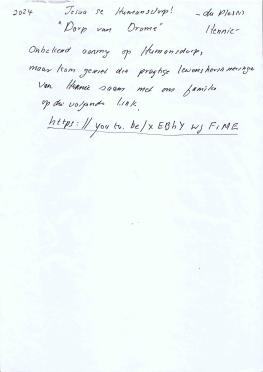 2024 Jesus se Humansdorp! - du Plessis
"Dorp van Drome" Hennie -
Onbekend aanmy op Humansdorp,
maar kom geniet die pragtige lewensherinneringe
van Hennie saam met ons familie
op die volgende link.
https://youtu.be/xEBhYwjFiME